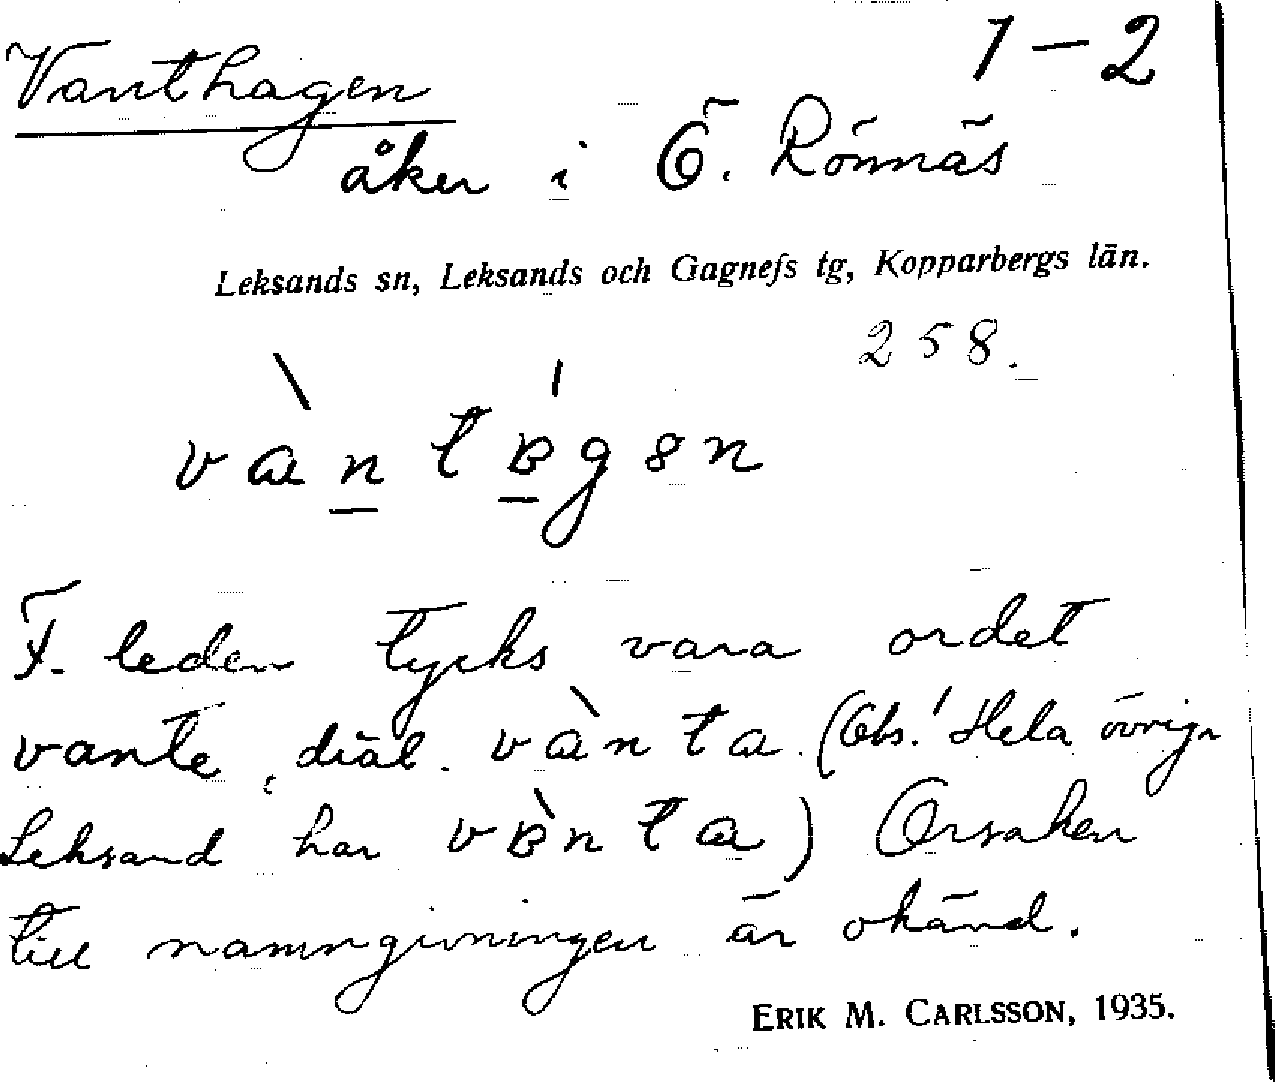 Vanthagen 1–2
åker i Ö. Rönnäs
Leksands sn, Leksands och Gagnefs tg, Kopparbergs län.
258.
F. leden tycks vara ordet
vante, dial. vànta. (Obs.! Hela övriga
Leksand har) Orsaken
till namngivningen är okänd.
ERIK M. CARLSSON, 1935.